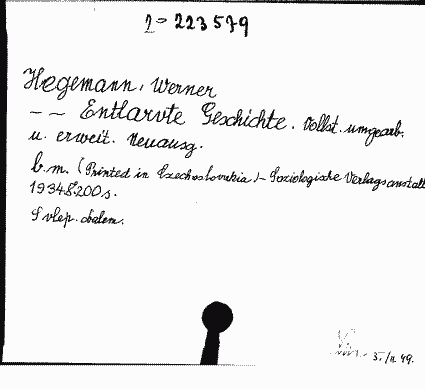 1-223579
Hegemann, Werner
— — Entlarvte Geschichte. Vollst. umgearb.
u. erweit. Neuausg.
b.m. (Printed in Czechoslovakia) - Soziologische Verlagsanstalt
1934 8. 200 s.
S vlep. obalem.
3./II 49.